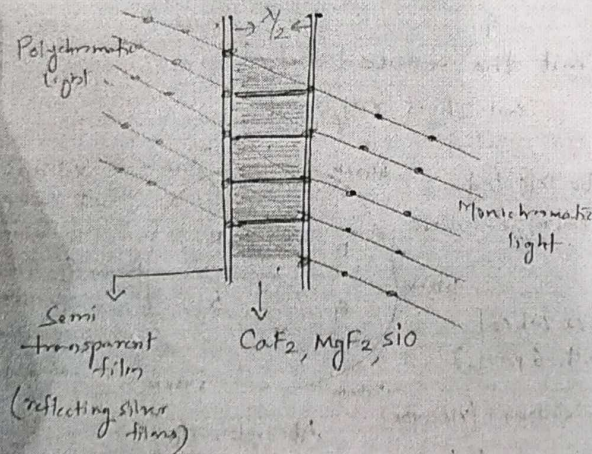 λ/2
Polychromatic
light
Monichromatic
light
Semi
transparent
film
(reflecting silver
films)
CaF2, MgF2, sio